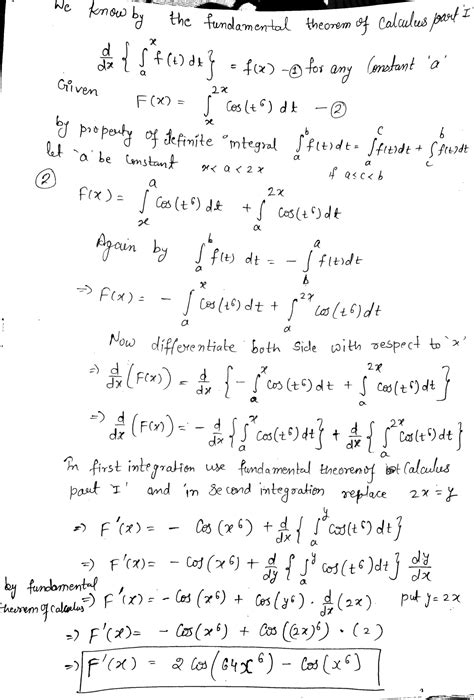 We know by the fundamental theorem of Calculus part I
d/dx { ∫_a^x f(t) dt } = f(x) - ① for any Constant 'a'
Given F(x) = ∫_x^{2x} Cos(t^6) dt - ②
by property of definite integral ∫_a^b f(t)dt = ∫_a^c f(t)dt + ∫_c^b f(t)dt
let 'a' be Constant x < a < 2x if a≤c<b
② F(x) = ∫_x^a Cos(t^6) dt + ∫_a^{2x} Cos(t^6) dt
Again by ∫_a^b f(t) dt = - ∫_b^a f(t)dt
⇒ F(x) = - ∫_a^x Cos(t^6)dt + ∫_a^{2x} Cos(t^6)dt
Now differentiate both side with respect to 'x'
⇒ d/dx (F(x)) = d/dx { - ∫_a^x Cos(t^6)dt + ∫_a^{2x} Cos(t^6)dt }
⇒ d/dx (F(x)) = - d/dx { ∫_a^x Cos(t^6)dt } + d/dx { ∫_a^{2x} Cos(t^6)dt }
In first integration use fundamental theorem of Calculus
part I' and in Second integration replace 2x = y
⇒ F'(x) = - Cos(x^6) + d/dx { ∫_a^y Cos(t^6)dt }
⇒ F'(x) = - Cos(x^6) + d/dy { ∫_a^y Cos(t^6)dt } dy/dx
by fundamental
theorem of calculus ⇒ F'(x) = - Cos(x^6) + Cos(y^6) · d/dx (2x) put y = 2x
⇒ F'(x) = - Cos(x^6) + Cos((2x)^6) · (2)
⇒ F'(x) = 2 Cos(64x^6) - Cos(x^6)